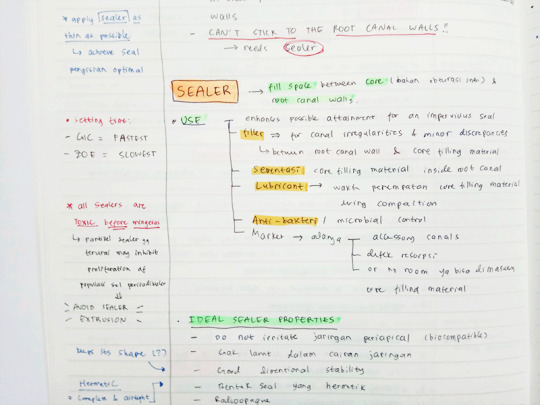 walls
- CAN'T STICK TO THE ROOT CANAL WALLS!!
→ needs sealer
* apply sealer as
thin as possible
↳ achieve seal
pengisian optimal
SEALER → fill space between core (bahan obturasi inti) &
root canal walls.
* setting time:
- GIC = FASTEST
- ZOE = SLOWEST
* all sealers are
TOXIC before mengeras
↳ partikel sealer yg
terurai may inhibit
proliferation of
populasi sel periradikuler
AVOID SEALER
EXTRUSION
• USE
enhances possible attainment for an impervious seal
filler ⇒ for canal irregularities & minor discrepancies
↳ between root canal wall & core filling material
Sementasi core filling material inside root canal
Lubricant → waktu penempatan core filling material
during compaction
Anti-bakteri / microbial control
Market → adanya accessory canals
- defek resorpsi
- or no room yg bisa dimasukin
core filling material
• IDEAL SEALER PROPERTIES
- Do not irritate jaringan periapical (biocompatible)
- Gak larut dalam cairan jaringan
- Good dimentional stability
- Bentuk seal yang hermetik
- Radioopaque
keeps its shape (??)
Hermetic
= Complete & airtight